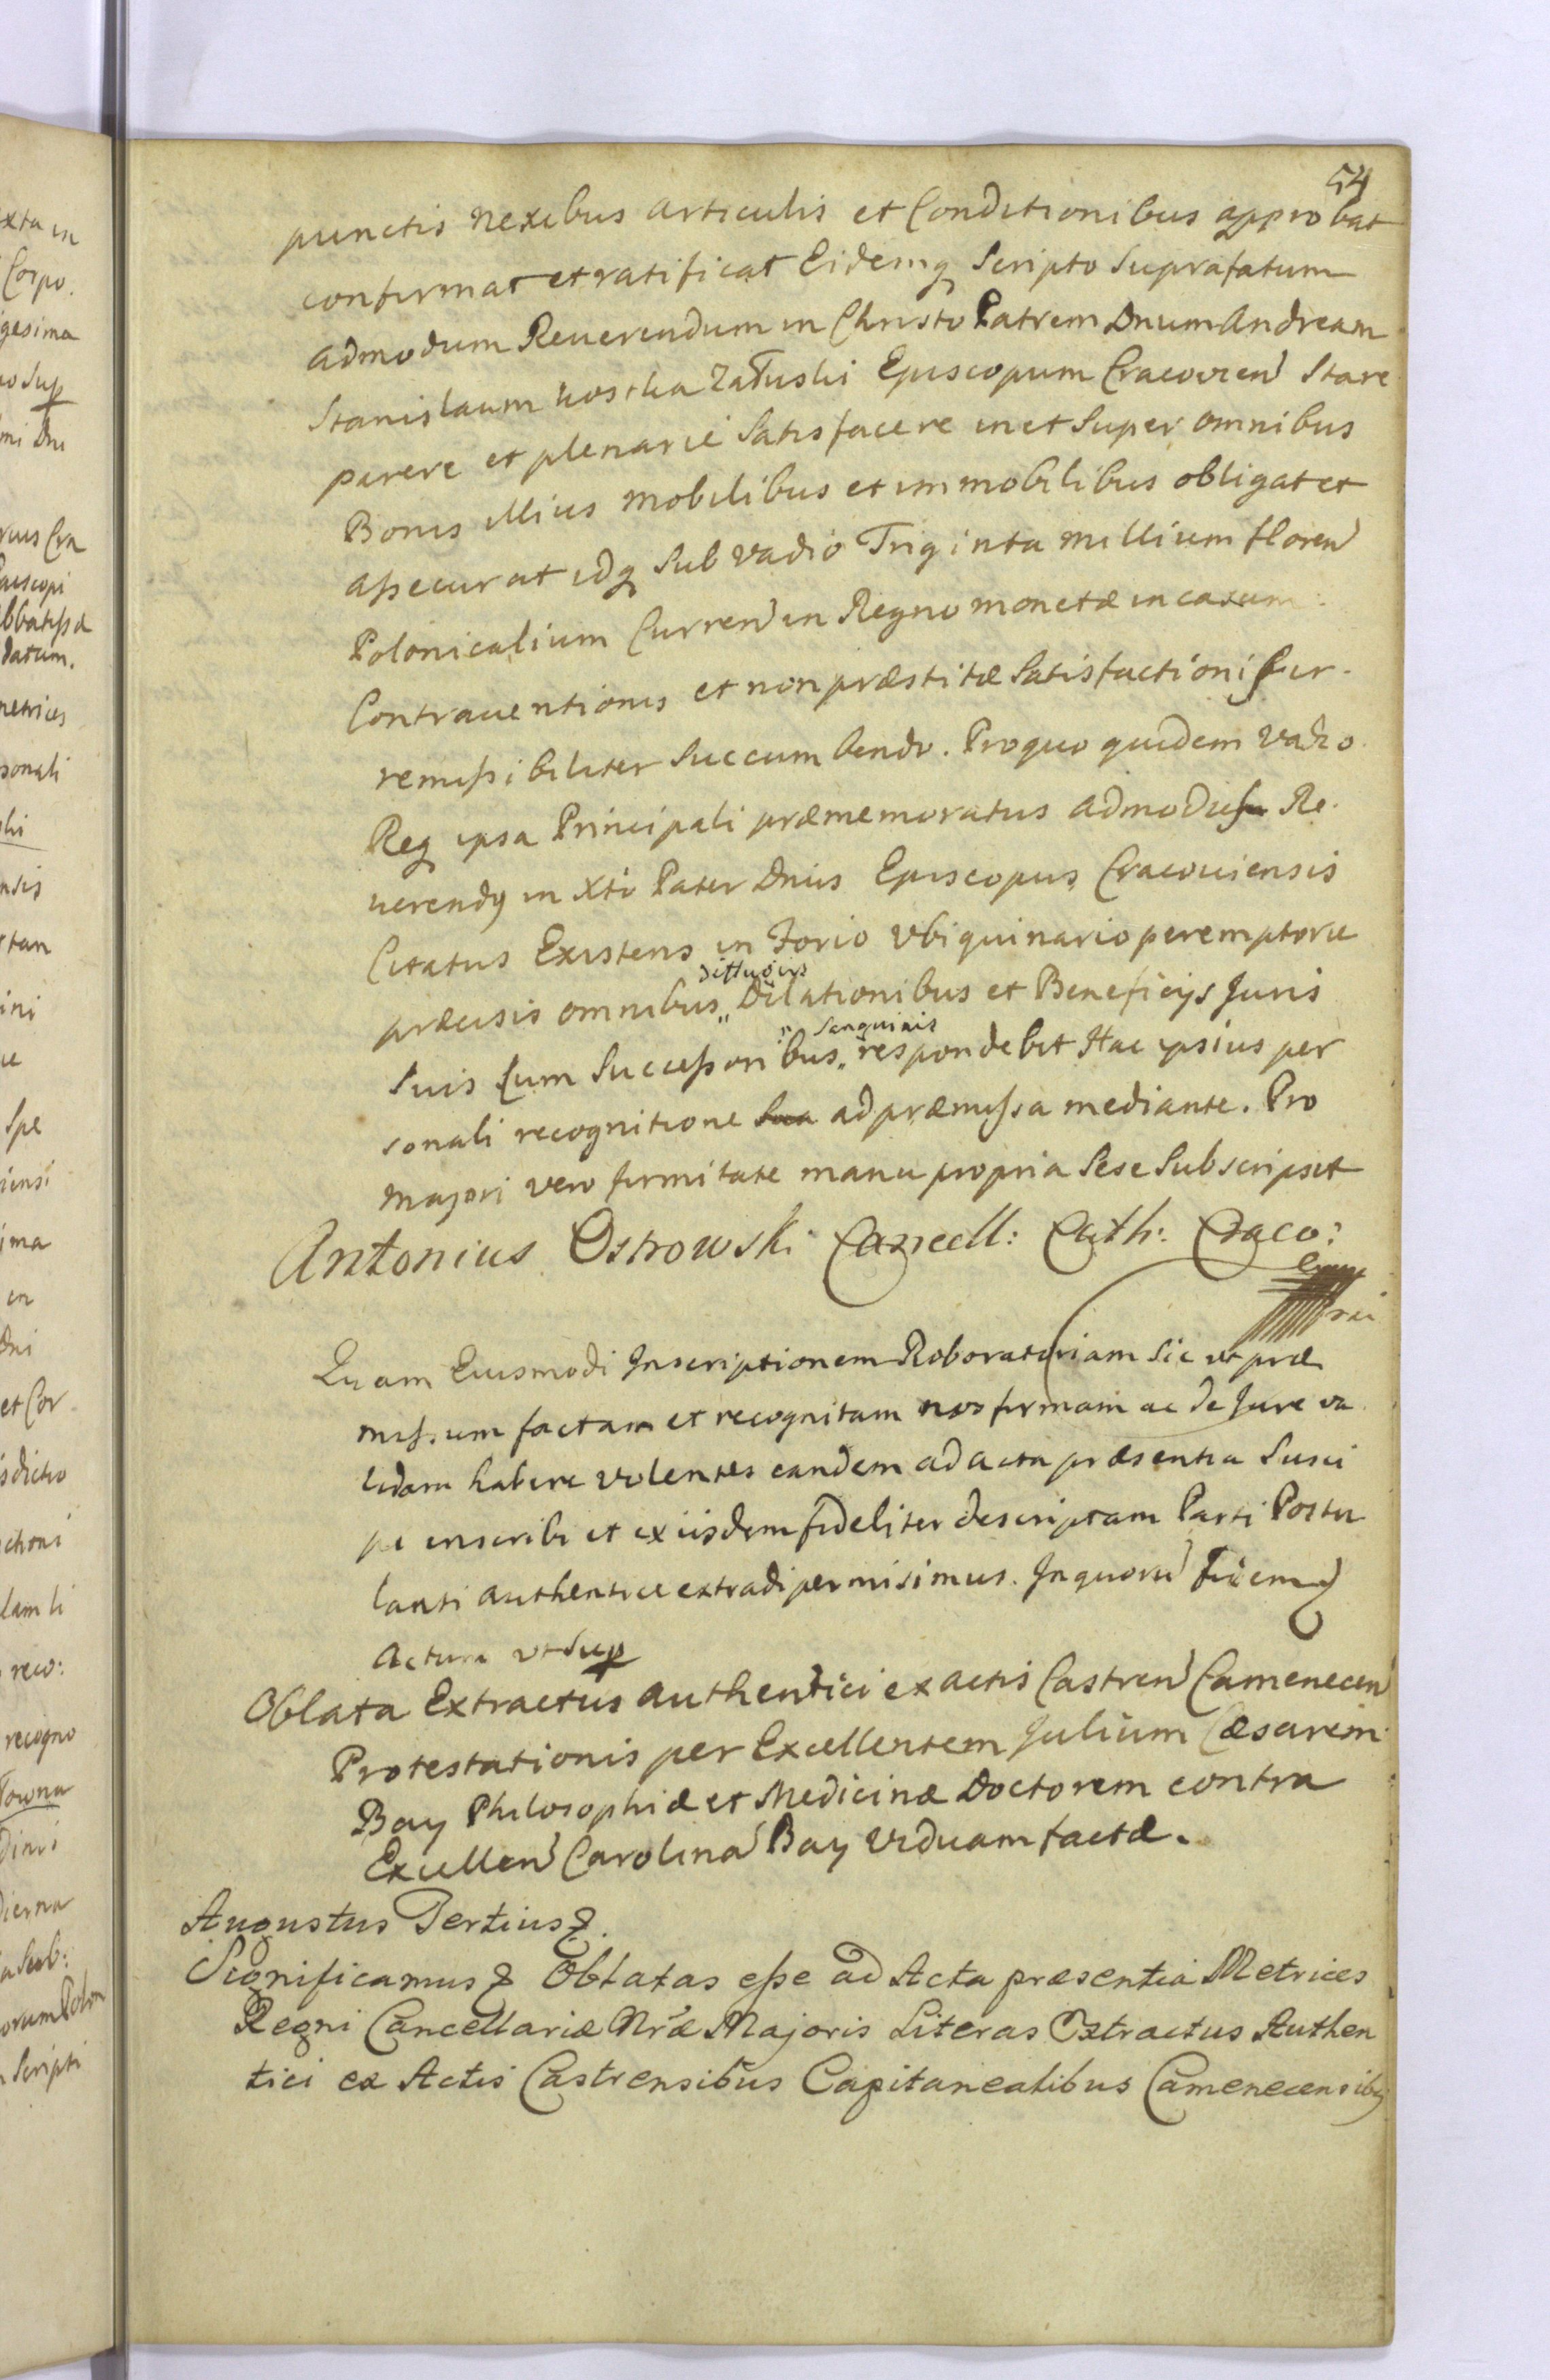 54
punctis nexibus articulis et Conditionibus approbat
confirmat et ratificat Eidemq Scripto Suprafatum
admodum Reuerendum in Christo Patrem Dnum Andream
Stanislaum Kostka Załuski Episcopum Cracovien Stare
parere et plenarie Satisfacere in et Super omnibus
Bonis illius mobilibus et immobilibus obligat et
assecurat idq Sub vadio Triginta millium floren
Polonicalium Curren in Regno monetæ in casum
Contrauentionis et non præstitæ Satisfactionis ir-
remissibiliter Succumbendo. Pro quo quidem vadio
Req ipsa Principali præmemoratus admodum Re-
uerendq in Xto Pater Dnus Episcopus Cracouiensis
Citatus Existens in Forio ubiquinario peremptorie
præcisis omnibus „ diffugiis Dilationibus et Beneficijs Juris
Suis Cum Successoribus „ Sanguinis respondebit Hac ipsius per
sonali recognitione Sua ad præmissa mediante. Pro
majori vero firmitate manu propria Sese Subscripsit
Antonius Ostrowski Cancell: Cath: Craco:
Quam Eiusmodi Inscriptionem Roboratoriam Sic ut præ
missum factam et recognitam nos firmam ac de Jure va
lidam habere volentes eandem ad acta præsentia Susci
pi inscribi et ex iisdem fideliter descriptam Parti Postu
lanti authentice extradi permisimus. In quoru Fidem
Actum ut Sup
Oblata Extractus authentici ex actis Castren Camenecen
Protestationis per Excellentem Julium Cæsarem
Bay Philosophiæ et Medicinæ Doctorem contra
Excellen Carolina Bay Viduam factæ.
Augustus Tertius &.
Significamus & Oblatas esse ad Acta præsentia Metrices
Regni Cancellariæ Nræ Majoris Literas Extractus Authen
tici ex Actis Castrensibus Capitanealibus Camenecensibq